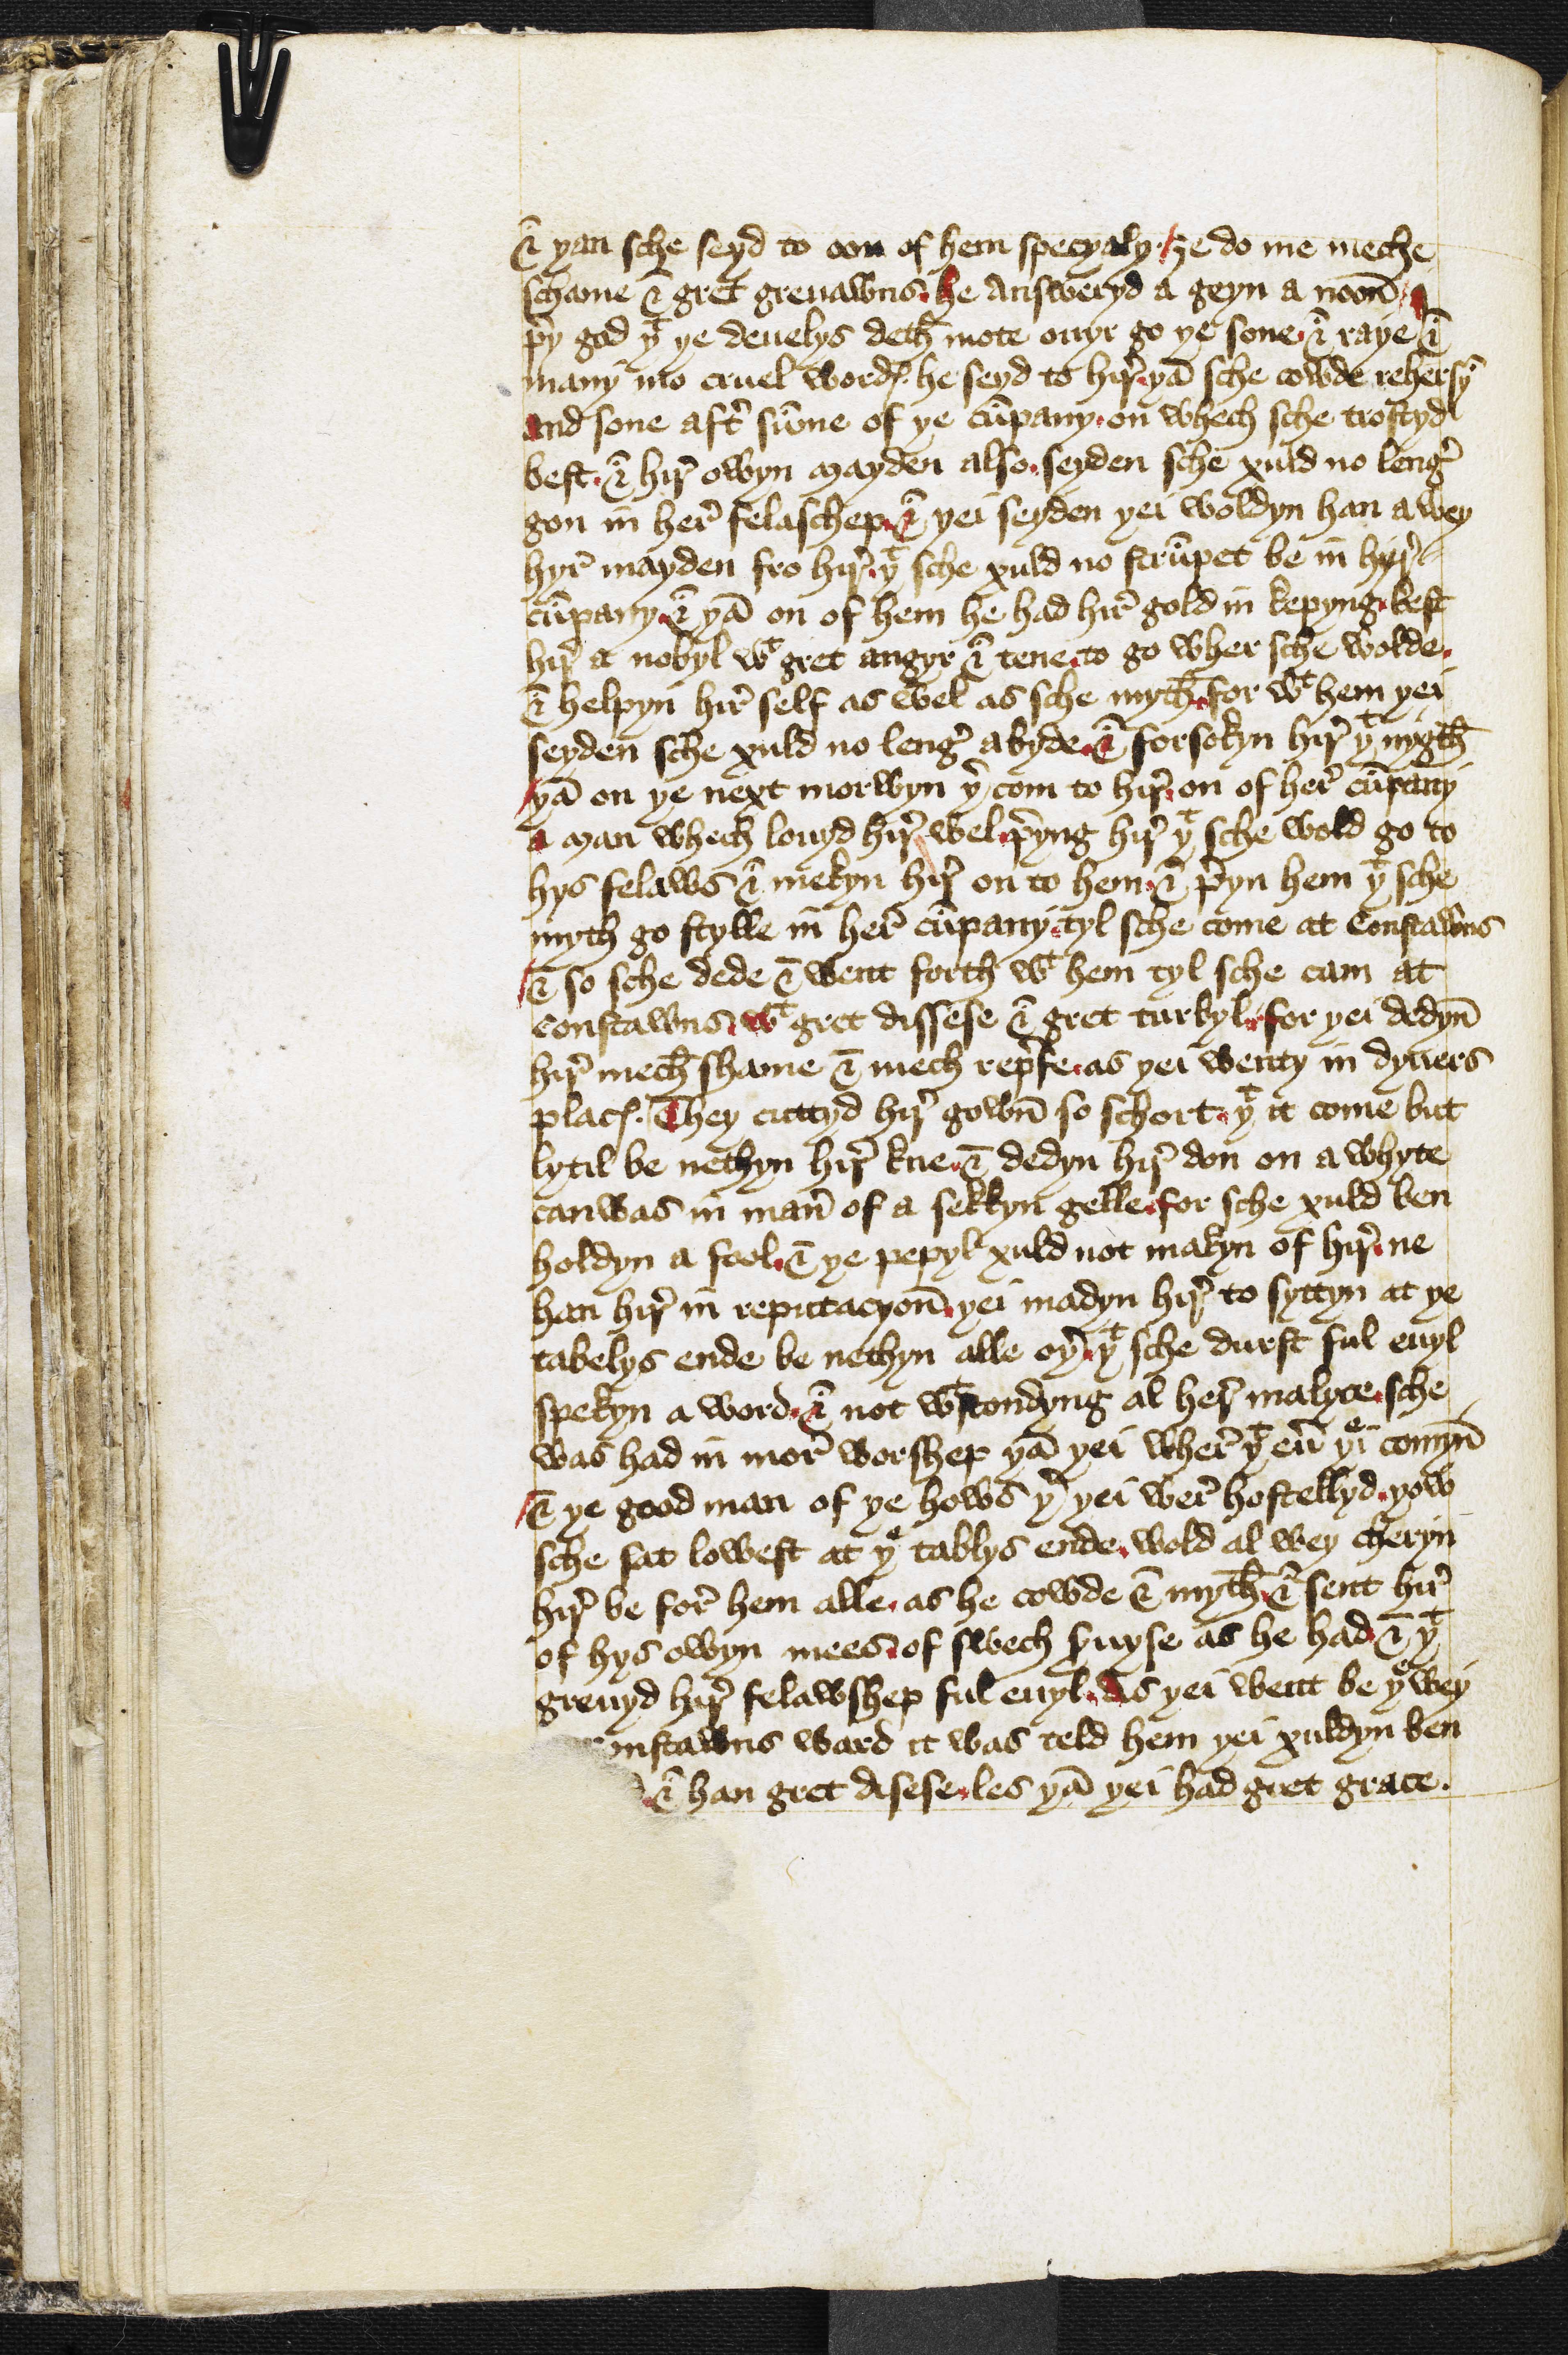 & yan sche seyd to oon of hem specyaly. ȝe do me meche
schame & gret greuawns. he Answeryd a geyn a noon̄. I
p̄y god yᵗ ye deuelys deth̄ mote ouyr go ye sone. & raye &
many mo cruel wordꝭ. he seyd to hir̄. yā sche cowde rehersyn̄
And sone aft̄ sūme of ye cūpany. on whech sche trostyd
best. & hir̄ owyn mayden also. seyden sche xuld no lenḡ
gon in her̄ felaschep. & yei seyden yei woldyn han a wey
hyr̄ mayden fro hir̄. yᵗ sche xuld no strūpet be in hyr̄
cūpany. & yā on of hem he had hir̄ gold in kepyng. left
hir̄ a nobyl wᵗ gret angyr & tene. to go wher sche wolde.
& helpyn hir̄ self as wel as sche myth̄. for wᵗ hem yei
seyden sche xuld no lenḡ abyde. & forsokyn hir̄ yᵗ nygth̄
yā on ye next morwyn ȳ com to hir̄. on of her̄ cūpany
a man whech louyd hir̄. wel. p̄yng hir̄ yᵗ sche wold go to
hys felaws & mekyn hir̄ on to hem. & p̄yn hem yᵗ sche
myth go stylle in her̄ cūpany. tyl sche come at Constawns
& so sche dede & went forth wᵗ hem tyl sche cam at
Constawns. wᵗ gret dissese & gret turbyl. for yei dedyn̄
hir̄ mech̄ shame & mech rep̄fe. as yei wenty in dyuers
placꝭ. They cuttyd hir̄ gown̄ so schort. yᵗ it come but
lytil be nethyn hir̄ kne. & dedyn hir̄ don on a whyte
canwas in man̄ of a sekkyn gelle. for sche xuld ben
holdyn a fool. & ye pepyl xuld not makyn of hir̄. ne
han hir̄ in reputacyon̄. yei madyn hir̄ to syttyn at ye
tabelys ende be nethyn alle oȳ. yᵗ sche durst ful euyl
spekyn a word. & not wᵗstondyng al her̄ malyce. sche
was had in mor̄ worshep yā yei wher̄ yᵗ eū yᵉi comyn̄
& ye good man of ye hows ȳ yei wer̄ hostellyd. yow
sche sat lowest at yᵉ tablys ende. wold al wey cheryn
hir̄ be for̄ hem alle. as he cowde & myth̄. & sent hir̄
of hys owyn mees. of swech s̄uyse as he had. & yᵗ
greuyd hir̄ felawshep ful euyl. As yei went be yᵉ wey
onstawns ward it was teld hem yei xuldyn ben
& han gret disese. les yā yei had gret grace.